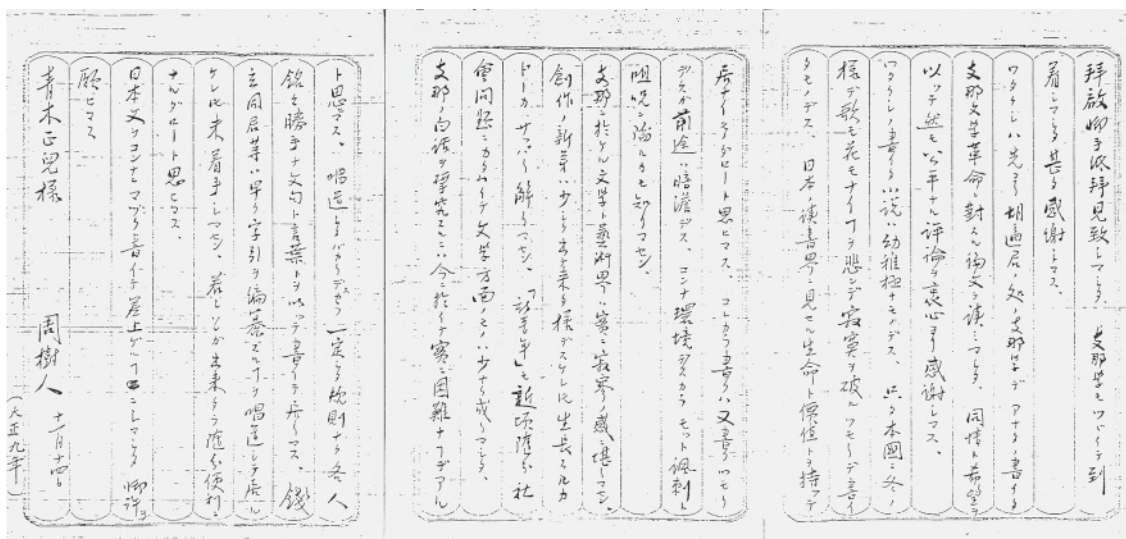 拝啓御手紙拝見致シマシタ、支那学モツヾイテ到
着シマシタ甚ダ感謝シマス。
ワタクシハ先ニ胡適君ノ処ノ支那学デアナタノ書イタ
支那文学革命ニ対スル論文ヲ読ミマシタ、同情ト希望ヲ
以ッテ然モ公平ナル評論ヲ衷心ヨリ感謝シマス、
ワタクシノ書イタ小説ハ幼稚極ナモノデス、只ダ本國ニ冬ノ
様デ歌モ花モナイヿヲ悲シンデ寂寞ヲ破ルツモリデ書イ
タモノデス、日本ノ読書界ニ見セル生命ト價値トヲ持ッテ
居ナイモノダロート思ヒマス、コレカラ書クハ又書クツモリ
デスガ前途ハ暗澹デス、コンナ環境デスカラモット諷刺ト
咀呪ニ陥ルカモ知レマセン、
支那ニ於ケル文学ト藝術界ハ實ニ寂寥ノ感ニ堪ヘマセン、
創作ノ新芽ハ少シク出来タ様デスケレ𪜈生長スルカ
ドーカサッパリ解リマセン、「新青年」モ近頃随分社
會問題ニカタムイテ文学方面ノモノハ少ナク成リマシタ、
支那ノ白話ヲ研究スルニハ今ニ於イテ實ニ困難ナヿデアル
ト思マス、唱道シタバカリデスカラ一定シタ規則ナク各人
銘々勝手ナ文句ト言葉トヲ以ッテ書イテ居リマス、錢
玄同君等ハ早ク字引ヲ編纂スルヿヲ唱道シテ居ル
ケレ𪜈未ダ着手シマセン、若シソレガ出来タラ随分便利ニ
ナルダロート思ヒマス、
日本文ヲコンナニマヅク書イテ差上ゲルヿニシマシタ御許ヲ
願ヒマス
青木正児様 周樹人 十一月十四日
(大正九年)